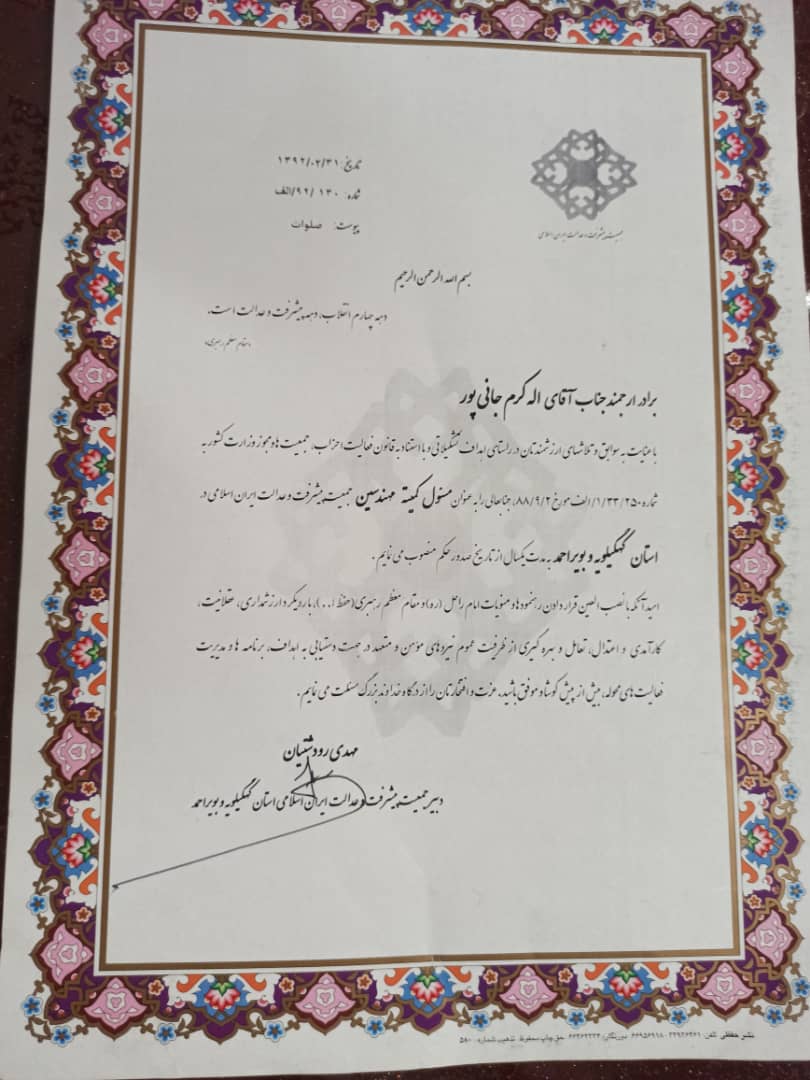 تاریخ: ۱۳۹۲/۰۲/۳۱
شماره: ۱۳۰ /۹۲/الف
پیوست: صلوات
جمعیت پیشرفت و عدالت ایران اسلامی
بسم الله الرحمن الرحیم
دهه چهارم انقلاب، دهه پیشرفت و عدالت است.
،مقام معظم رهبری،
برادر ارجمند جناب آقای اله کرم جانی پور
با عنایت به سوابق و تلاشهای ارزشمندتان در راستای اهداف تشکیلاتی و با استناد به قانون فعالیت احزاب، جمعیت ها و مجوز وزارت کشور به
شماره ۱/۳۳/۲۵۰/الف مورخ ۸۸/۹/۲، جنابعالی را به عنوان مسئول کمیته مهندسین جمعیت پیشرفت و عدالت ایران اسلامی در
استان کهگیلویه و بویراحمد به مدت یکسال از تاریخ صدور حکم منصوب می نمایم .
امید آنکه با نصب العین قرار دادن رهنمودها و منویات امام راحل (ره) و مقام معظم رهبری(حفظ ا...)، با رویکرد ارزشمداری، عقلانیت،
کارآمدی و اعتدال، تعامل و بهره گیری از ظرفیت عموم نیروهای مؤمن و متعهد در جهت دستیابی به اهداف، برنامه ها و مدیریت
فعالیت های محوله، بیش از پیش کوشا و موفق باشید. عزت و افتخارتان را از درگاه خداوند بزرگ مسئلت می نمایم .
مهدی رودشتیان
دبیر جمعیت پیشرفت و عدالت ایران اسلامی استان کهگیلویه و بویراحمد
نشر حفظی تلفن: ۳۳۹۲۶۳۶۱ - ۶۶۹۵۶۹۱۸ دورنگار: ۶۶۴۶۲۲۳۴ حق چاپ محفوظ تذهیب شماره: ۵۸۰